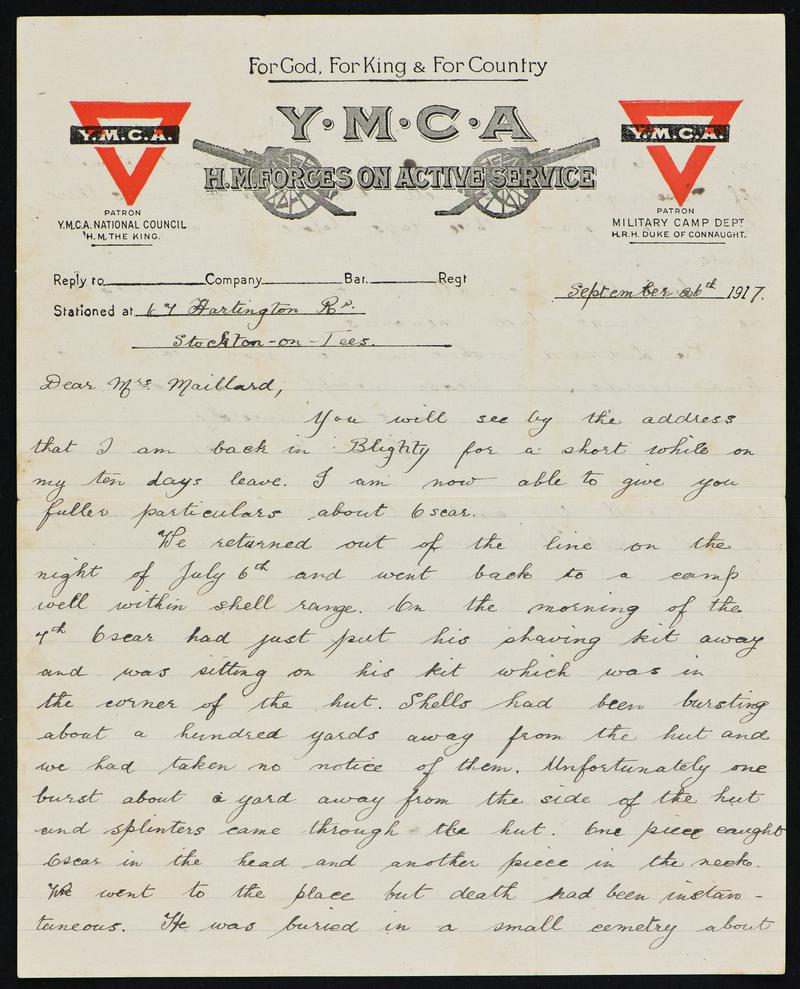 For God, For King & For Country
Y.M.C.A.
Y·M·C·A
Y.M.C.A.
H.M. FORCES ON ACTIVE SERVICE
PATRON
Y.M.C.A. NATIONAL COUNCIL
H.M. THE KING.
PATRON
MILITARY CAMP DEPT
H.R.H. DUKE OF CONNAUGHT.
Reply to Company Bat. Regt
September 26th 1917.
Stationed at 67 Hartington Rd.
Stockton-on-Tees.
Dear Mrs. Maillard,
You will see by the address
that I am back in Blighty for a short while on
my ten days leave. I am now able to give you
fuller particulars about Oscar.
We returned out of the line on the
night of July 6th and went back to a camp
well within shell range. On the morning of the
7th Oscar had just put his shaving kit away
and was sitting on his kit which was in
the corner of the hut. Shells had been bursting
about a hundred yards away from the hut and
we had taken no notice of them. Unfortunately one
burst about a yard away from the side of the hut
and splinters came through the hut. One piece caught
Oscar in the head and another piece in the neck.
We went to the place but death had been instan-
taneous. He was buried in a small cemetry about